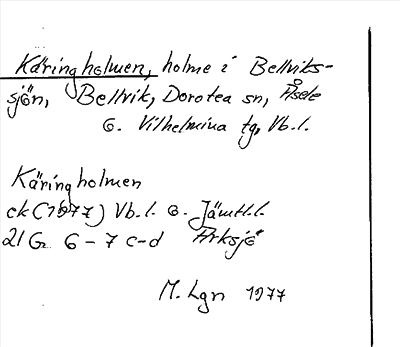 Käringholmen, holme i Bellviks-
sjön, Bellvik, Dorotea sn, Åsele
o. Vilhelmina tg, Vb.l.
Käringholmen
ek (1977) Vb.l. o. Jämtl.l.
21 G 6-7 c-d Arksjö
M. Lgn 1977